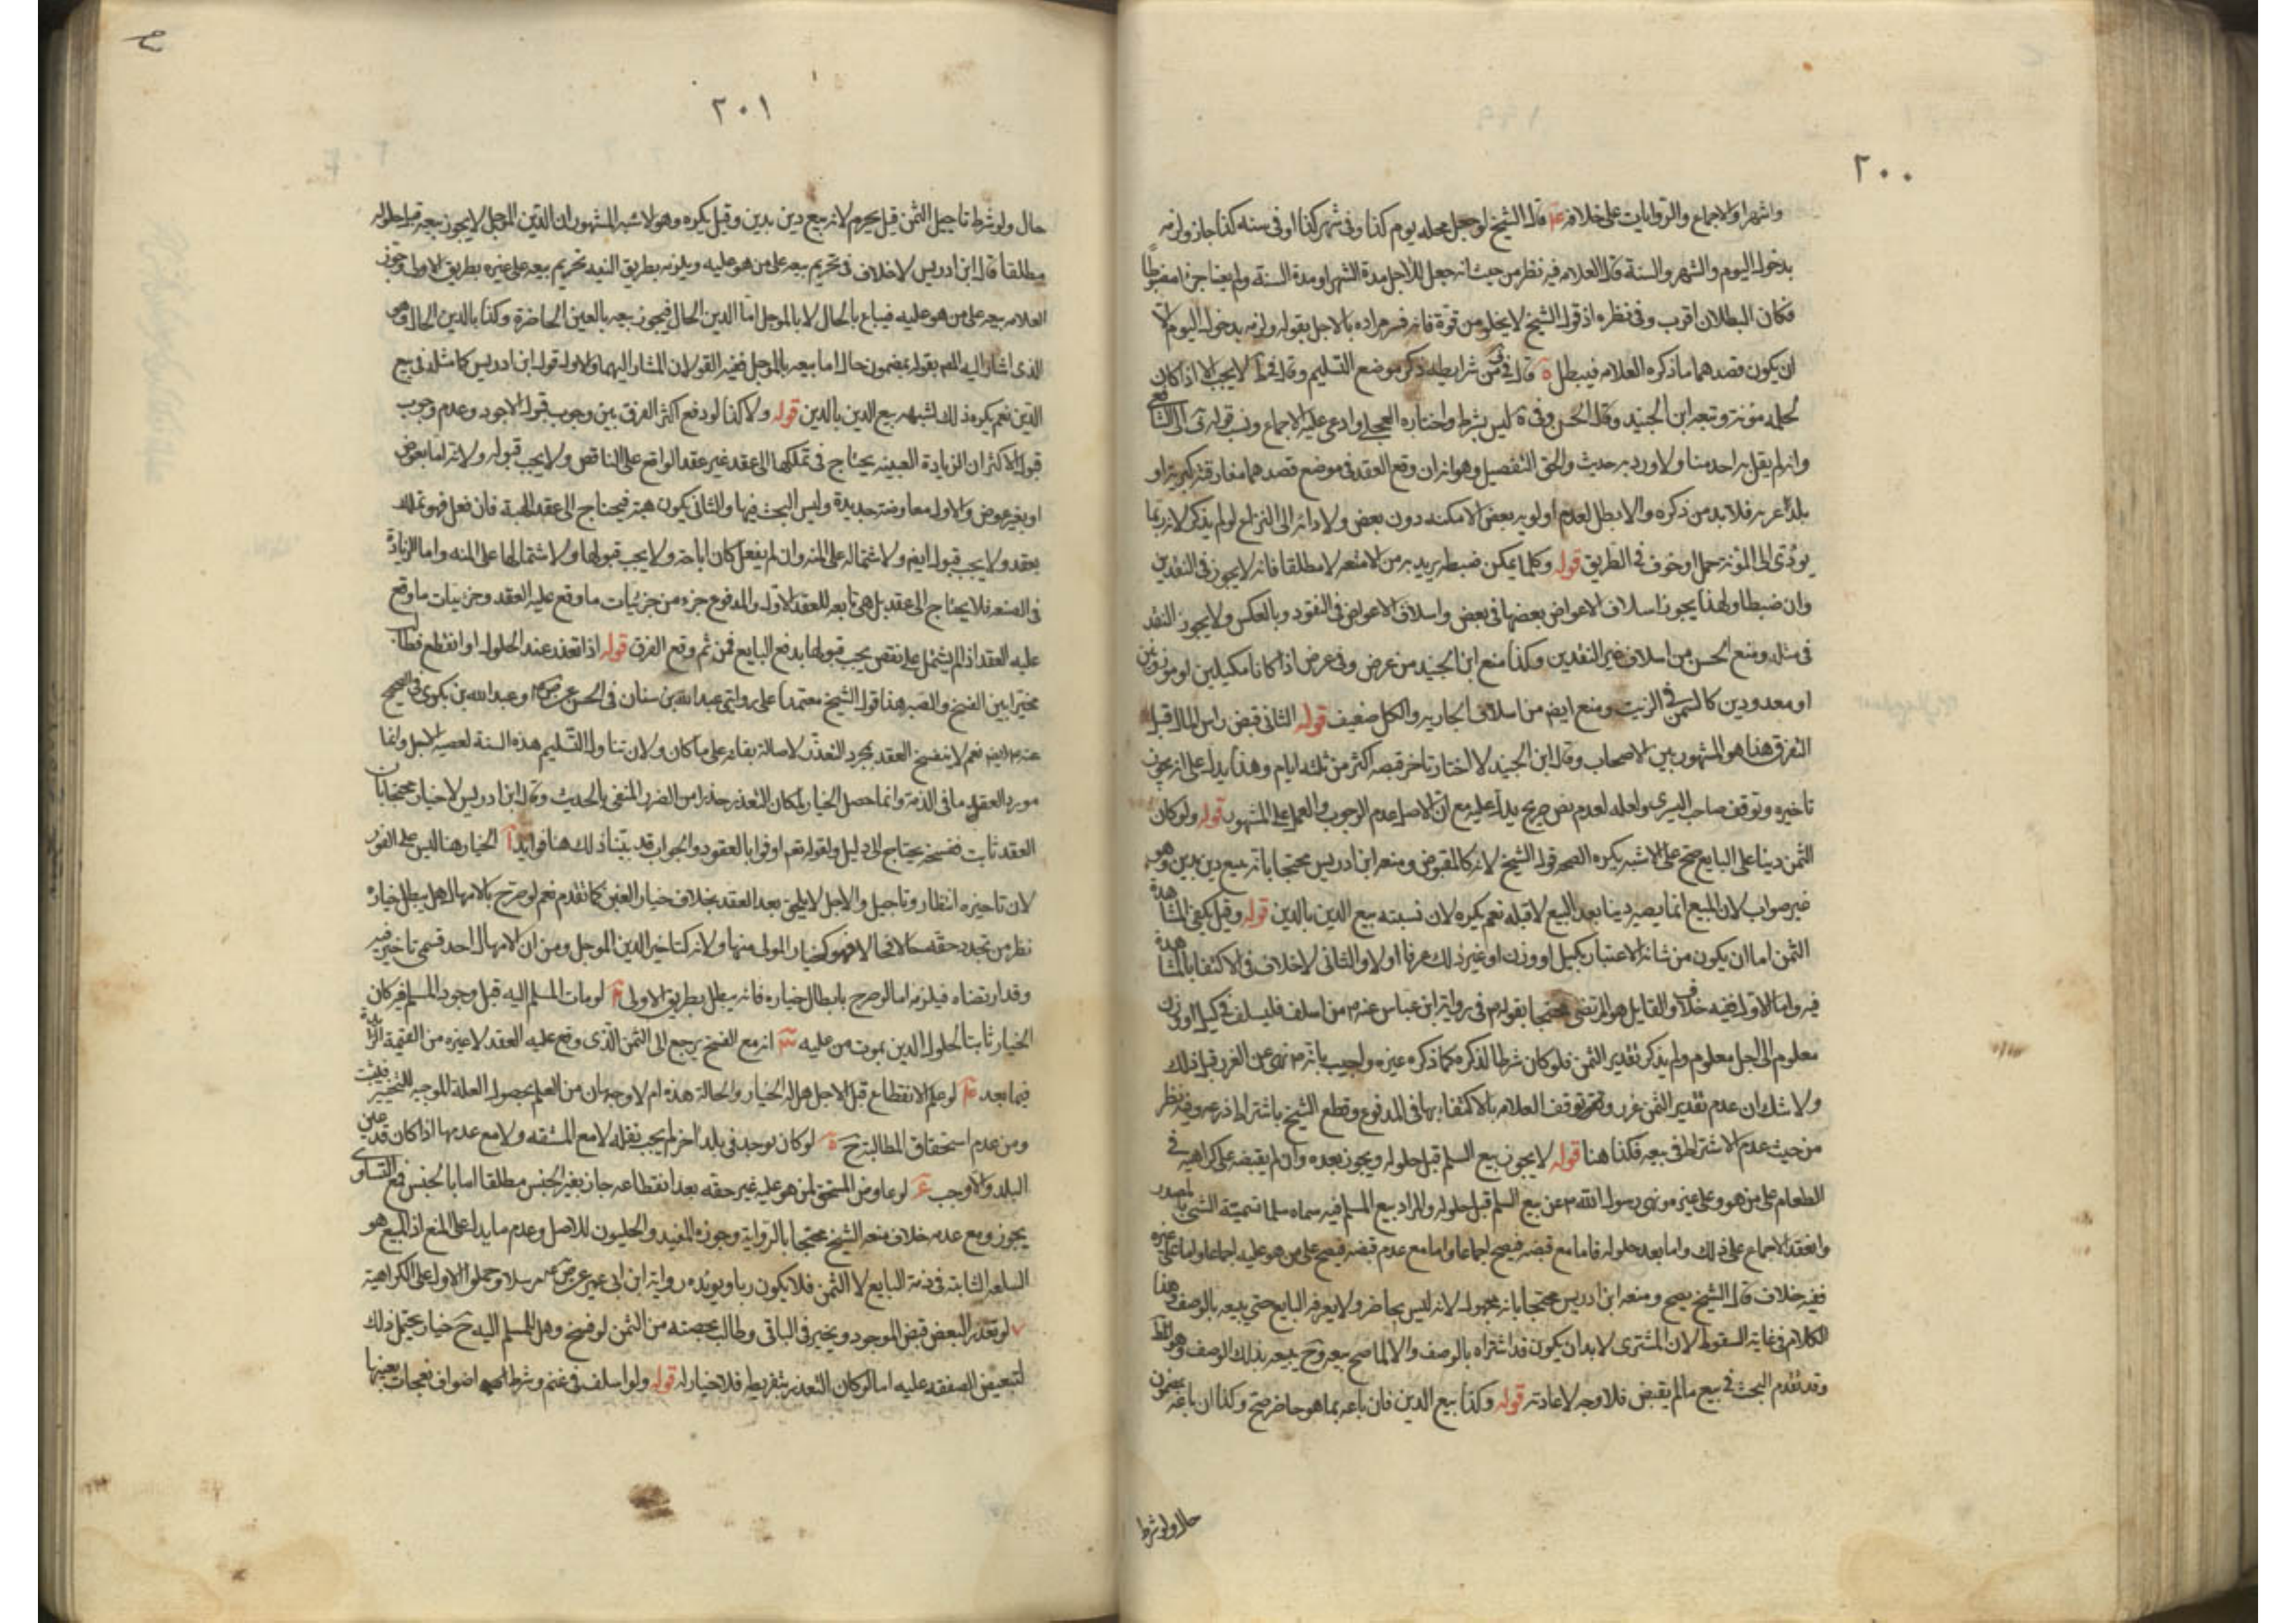 ٢٠٠
واشهرا والاجماع والروايات على خلافه قال الشيخ لو جعل محله يوم كذا وفى شهر كذا او فى سنه كذا جاز ولزمه
بدخول اليوم والشهر والسنة وقال العلامه فيه نظر من حيث انه جعل للاجل مدة الشهر او مدة السنة ولم يعينا جزءا مضبوطا
فكان البطلان اقرب وفى نظره اذ قول الشيخ لا يخلو من قوة فانه فسر مراده بالاجل بقوله ولزمه بدخول اليوم
ان يكون قصدهما ما ذكره العلامه فيبطل ٥ قال فى شرايطه ذكر موضع التسليم وقال فى ط لا يجب الا اذا كان
لحمله مؤنة وتبعه ابن الجنيد وقال الحسن وفى ليس بشرط واختاره العجلى وادعى عليه الاجماع ونسب قوله الى الشافعى
وانه لم يقل به احد منا ولا ورد به حديث والحق التفصيل وهو انه ان وقع العقد فى موضع قصدهما مفارقته كبرية او
بلد غربه فلا بد من ذكره والا بطل لعدم اولويه بعض الامكنه دون بعض ولادائه الى النزاع لو لم يذكر لانه ربما
يؤدى الى المؤنة حمل او خوف فى الطريق قوله وكلما يمكن ضبطه يريد به من الامتعه لا مطلقا فانه لا يجوز فى النقدين
وان ضبطا ولهذا يجوز اسلاف الاعواض بعضها فى بعض واسلاف الاعواض فى النقود وبالعكس ولا يجوز النقد
فى مثله ومنع الحسن من اسلاف غير النقدين وكذا منع ابن الجنيد من عرض وفى عرض اذا كانا مكيلين او موزونين
او معدودين كالسمن فى الزيت ومنع ايضا من اسلاف الجاريه والكل ضعيف قوله الثانى قبض راس المال قبل
التفرق هذا هو المشهور بين الاصحاب وقال ابن الجنيد لا اختار تاخر قبضه اكثر من ثلثه ايام وهذا يدل على انه يجوز
تاخيره وتوقف صاحب البشرى ولعله لعدم نص صريح يدل عليه مع ان الاصل عدم الوجوب والعمل على المشهور قوله ولو كان
الثمن دينا على البايع صح على الاشبه يكره الصحه قول الشيخ لانه كالمقبوض ومنعه ابن ادريس محتجا بانه بيع دين بدين وهو
غير صواب لان المبيع انما يصير دينا بعد البيع لا قبله نعم يكره لان نسبته بيع الدين بالدين قوله وقيل يكفى المشاهدة
الثمن اما ان يكون من شانه الاعتبار بكيل او وزن او غير ذلك عرفا اولا والثانى لا خلاف فى الاكتفا بالمشاهدة
فيه واما الاول ففيه خلاف والقايل هو المرتضى محتجا بقوله فى رواية ابن عباس عنه من اسلف فليسلف فى كيل او وزن
معلوم الى اجل معلوم ولم يذكر تقدير الثمن فلو كان شرطا لذكره كما ذكره غيره واجيب بانه نهى عن الغرر قبل ذلك
ولا شك ان عدم تقدير الثمن غرر وتوقف العلامه بالاكتفاء بها فى المدفوع وقطع الشيخ باشتراط ذرعه وفيه نظر
من حيث عدم الاشتراط فى بيعه فكذا هنا قوله لا يجوز بيع السلم قبل حلوله ويجوز بعده وان لم يقبضه على كراهية فى
الطعام على من هو وعلى غيره نهى رسول الله عن بيع السلم قبل حلوله والمراد بيع المسلم فيه سماه سلما تسمية الشئ بالمصدر
وانعقد الاجماع على ذلك واما بعد حلوله فاما مع قبضه فيصح اجماعا واما مع عدم قبضه فيصح على من هو عليه اجماعا واما على غيره
ففيه خلاف قال الشيخ يصح ومنعه ابن ادريس محتجا بانه مجهول لانه ليس بحاضر ولا يعرفه البايع حتى يبيعه بالوصف وهذا
الكلام فى غاية السقوط لان المشترى لا بد ان يكون قد اشتراه بالوصف والا لما صح بيعه وح يبيعه بذلك الوصف
وقد تقدم البحث فى بيع ما لم يقبض فلا وجه لاعادته قوله وكذا بيع الدين فان باعه بما هو حاضر صح وكذا ان باعه بمضمون
حال ولو شرط
٢٠١
حال ولو شرط تاجيل الثمن قيل يحرم لانه بيع دين بدين وقيل يكره وهو الاشبه المشهور ان الدين المؤجل لا يجوز بيعه قبل حلوله
مطلقا قال ابن ادريس لا خلاف فى تحريم بيعه على من هو عليه ويلزمه بطريق التنبيه تحريم بيعه على غيره بطريق الاولى وجوز
العلامه بيعه على من هو عليه فيباع بالحال لا بالمؤجل اما الدين الحال فيجوز بيعه بالعين الحاضرة وكذا بالدين الحال وهو
الذى اشار اليه المص بقوله بمضمون حال اما بيعه بالمؤجل ففيه القولان المشار اليهما والاول قول ابن ادريس كما مثله فى بيع
الدين نعم يكره ذلك لشبهه بيع الدين بالدين قوله ولا كذا لو دفع اكثر الفرق بين وجوب قبول الاجود وعدم وجوب
قبول الاكثر ان الزيادة العينيه يحتاج فى تملكها الى عقد غير عقد الواقع على الناقص ولا يجب قبوله ولانه اما بعوض
او بغير عوض والاول معاوضة جديدة وليس البحث فيها والثانى يكون هبة فيحتاج الى عقد الهبة فان فعل فهو تملك
بعقد ولا يجب قبوله ايضا ولاشتماله على المنه وان لم يفعل كان اباحة ولا يجب قبولها ولاشتمالها على المنه واما الزيادة
فى الصفه فلا يحتاج الى عقد بل هى تابعه للعقد الاول والمدفوع جزء من جزئيات ما وقع عليه العقد وجزئيات ما وقع
عليه العقد اذا لم يشتمل على نقص يجب قبولها بدفع البايع فمن ثم وقع الفرق قوله اذا تعذر عند الحلول او انقطع فطالب
مخيرا بين الفسخ والصبر هذا قول الشيخ معتمدا على روايتى عبد الله بن سنان فى الحسن عن ص وعبد الله بن بكير فى الصحيح
عنه ايضا نعم لا ينفسخ العقد بمجرد التعذر لاصالة بقائه على ما كان ولان تناول التسليم هذه السنة لعصبه الاجل وانما
مورد العقد ما فى الذمة وانما حصل الخيار لمكان التعذر حذرا من الضرر المنفى بالحديث وقال ابن ادريس لا خيار محتجا بان
العقد ثابت ففسخه يحتاج الى دليل ولقوله تعم اوفوا بالعقود والجواب قد بينا ذلك هنا فوايد آ الخيار هنا ليس على الفور
لان تاخيره انتظار وتاجيل والاجل لا يلحق بعد العقد بخلاف خيار الغبن كما تقدم نعم لو صرح بالامهال هل يبطل خياره
نظر من تجدد حقه حالا فحالا فهو كخيار المولى منها ولانه كتاخير الدين المؤجل ومن ان الامهال احد قسمى تاخيره
وقد ارتضاه فيلزمه اما لو صرح بابطال خياره فانه يبطل بطريق الاولى لو مات المسلم اليه قبل وجود المسلم فيه كان
الخيار ثابتا لحلول الدين بموت من عليه انه مع الفسخ يرجع الى الثمن الذى وقع عليه العقد لا غيره من القيمة الزايدة
فيما بعد لو علم الانقطاع قبل الاجل هل له الخيار والحالة هذه ام لا وجهان من العلم بحصول العلة الموجبه للتخيير فيثبت
ومن عدم استحقاق المطالبة ح ٥ لو كان يوجد فى بلد اخر لم يجب نقله لا مع المشقه ولا مع عدمها اذا كان قد عين
البلد والا وجب لو عاوض المستحق لمن هو عليه غير حقه بعد انقطاعه جاز بغير الجنس مطلقا اما بالجنس فمع التساوى
يجوز ومع عدمه خلاف منعه الشيخ محتجا بالرواية وجوزه المفيد والحليون للاصل وعدم ما يدل على المنع اذ المبيع هو
السلعه الثابته فى ذمة البايع لا الثمن فلا يكون ربا ويؤيده رواية ابن ابى عمير عن ص مرسلا وحملوا الاولى على الكراهية
لو تعذر البعض قبض الموجود ويخير فى الباقى وطالب بحصته من الثمن لو فسخ وهل للمسلم اليه ح خيار يحتمل ذلك
لتبعيض الصفقه عليه اما لو كان التعذر بتفريطه فلا خيار له قوله ولو اسلف فى غنم وشرط اصواف نعجات بعينها